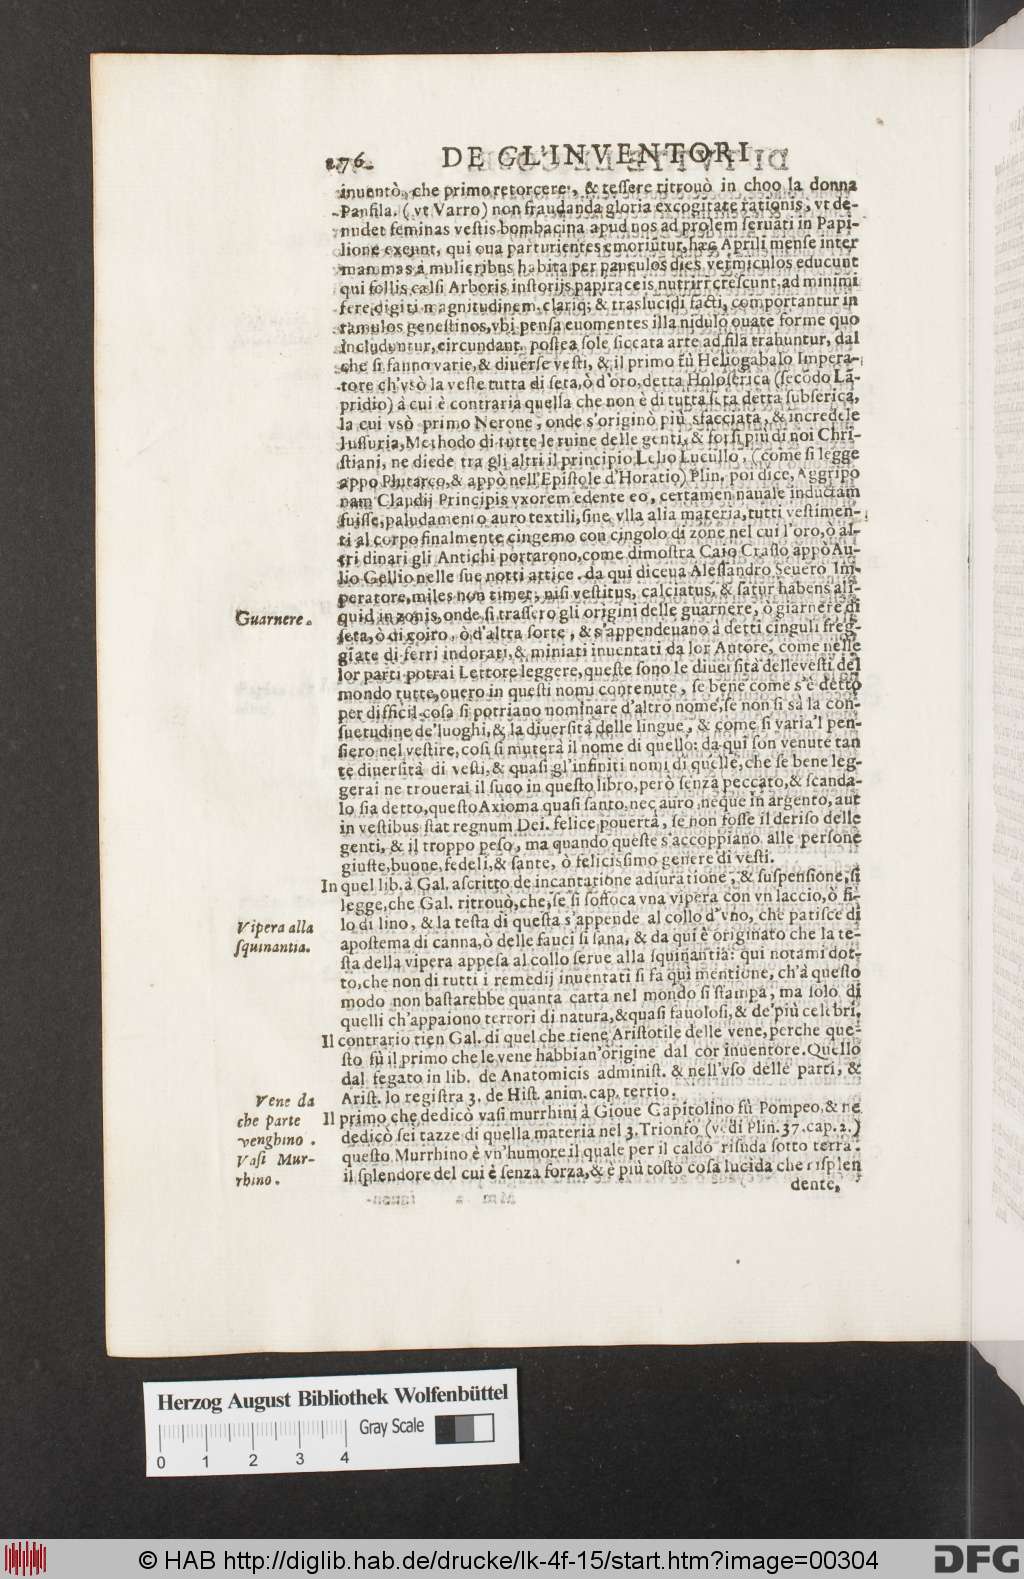 276.
DE GL'INVENTORI
inuentò, che primo retorcere, & tessere ritrouò in choo la donna
Panfila. (vt Varro) non fraudanda gloria excogitatę rationis, vt de-
nudet feminas vestis bombacina apud nos ad prolem seruati in Papi-
lione exeunt, qui oua parturientes emoriūtur, hæc Aprili mense inter
mammas à mulieribus habita per pauculos dies vermiculos educunt
qui follis cælsi Arboris instorijs papiraceis nutriri crescunt, ad minimi
fere digiti magnitudinem, clariq; & traslucidi facti, comportantur in
ramulos genestinos, vbi pensa euomentes illa nidulo ouate forme quo
includuntur, circundant, postea sole siccata arte ad fila trahuntur, dal
che si fanno varie, & diuerse vesti, & il primo fù Heliogabalo Impera-
tore ch'vsò la veste tutta di seta, ò d'oro, detta Holoserica (secōdo Lā-
pridio) à cui è contraria quella che non è di tutta seta detta subserica,
la cui vsò primo Nerone, onde s'originò più sfacciata, & incredele
lussuria, Methodo di tutte le ruine delle genti, & forsi più di noi Chri-
stiani, ne diede tra gli altri il principio Lelio Lucullo, (come si legge
appo Plutarco, & appò nell'Epistole d'Horatio) Plin. poi dice, Aggripo
nam Claudij Principis vxorem edente eo, certamen nauale inductam
fuisse, paludamento auro textili, sine vlla alia materia, tutti vestimen-
ti al corpo finalmente cingemo con cingolo di zone nel cui l'oro, ò al-
tri dinari gli Antichi portarono, come dimostra Caio Crasso appò Au-
lio Gellio nelle sue notti attice. da qui diceua Alessandro Seuero Im-
peratore, miles non timet, nisi vestitus, calciatus, & satur habens ali-
Guarnere.
quid in zonis, onde si trassero gli origini delle guarnere, ò giarnere di
seta, ò di coiro, ò d'altra sorte, & s'appendeuano à detti cinguli freg-
giate di ferri indorati, & miniati inuentati da lor Autore, come nelle
lor parti potrai Lettore leggere, queste sono le diuersità delle vesti del
mondo tutte, ouero in questi nomi contenute, se bene come s'è detto
per difficil cosa si potriano nominare d'altro nome, se non si sà la con-
suetudine de'luoghi, & la diuersità delle lingue, & come si varia'l pen-
siero nel vestire, così si muterà il nome di quello: da qui son venute tan
te diuersità di vesti, & quasi gl'infiniti nomi di quelle, che se bene leg-
gerai ne trouerai il suco in questo libro, però senza peccato, & scanda-
lo sia detto, questo Axioma quasi santo, nec auro, neque in argento, aut
in vestibus stat regnum Dei. felice pouertà, se non fosse il deriso delle
genti, & il troppo peso, ma quando queste s'accoppiano alle persone
giuste, buone, fedeli, & sante, ò felicissimo genere di vesti.
In quel lib. à Gal. ascritto de incantatione adiuratione, & suspensione, si
legge, che Gal. ritrouò, che, se si soffoca vna vipera con vn laccio, ò fi-
Vipera alla
squinantia.
lo di lino, & la testa di questa s'appende al collo d'vno, che patisce di
apostema di canna, ò delle fauci si sana, & da qui è originato che la te-
sta della vipera appesa al collo serue alla squinantia: qui notami dot-
to, che non di tutti i remedij inuentati si fa qui mentione, ch'à questo
modo non bastarebbe quanta carta nel mondo si stampa, ma solo di
quelli ch'appaiono terrori di natura, & quasi fauolosi, & de'più celebri.
Il contrario tien Gal. di quel che tiene Aristotile delle vene, perche que-
sto fù il primo che le vene habbian'origine dal cor inuentore. Quello
dal fegato in lib. de Anatomicis administ. & nell'vso delle parti, &
Arist. lo registra 3. de Hist. anim. cap. tertio.
Vene da
che parte
venghino.
Vasi Mur-
rhino.
Il primo che dedicò vasi murrhini à Gioue Capitolino fù Pompeo, & ne
dedicò sei tazze di quella materia nel 3. Trionfo (vedi Plin. 37. cap. 2.)
questo Murrhino è vn'humore il quale per il caldo risuda sotto terra.
il splendore del cui è senza forza, & è più tosto cosa lucida che risplen
dente,
Herzog August Bibliothek Wolfenbüttel
Gray Scale
0 1 2 3 4
© HAB http://diglib.hab.de/drucke/lk-4f-15/start.htm?image=00304
DFG